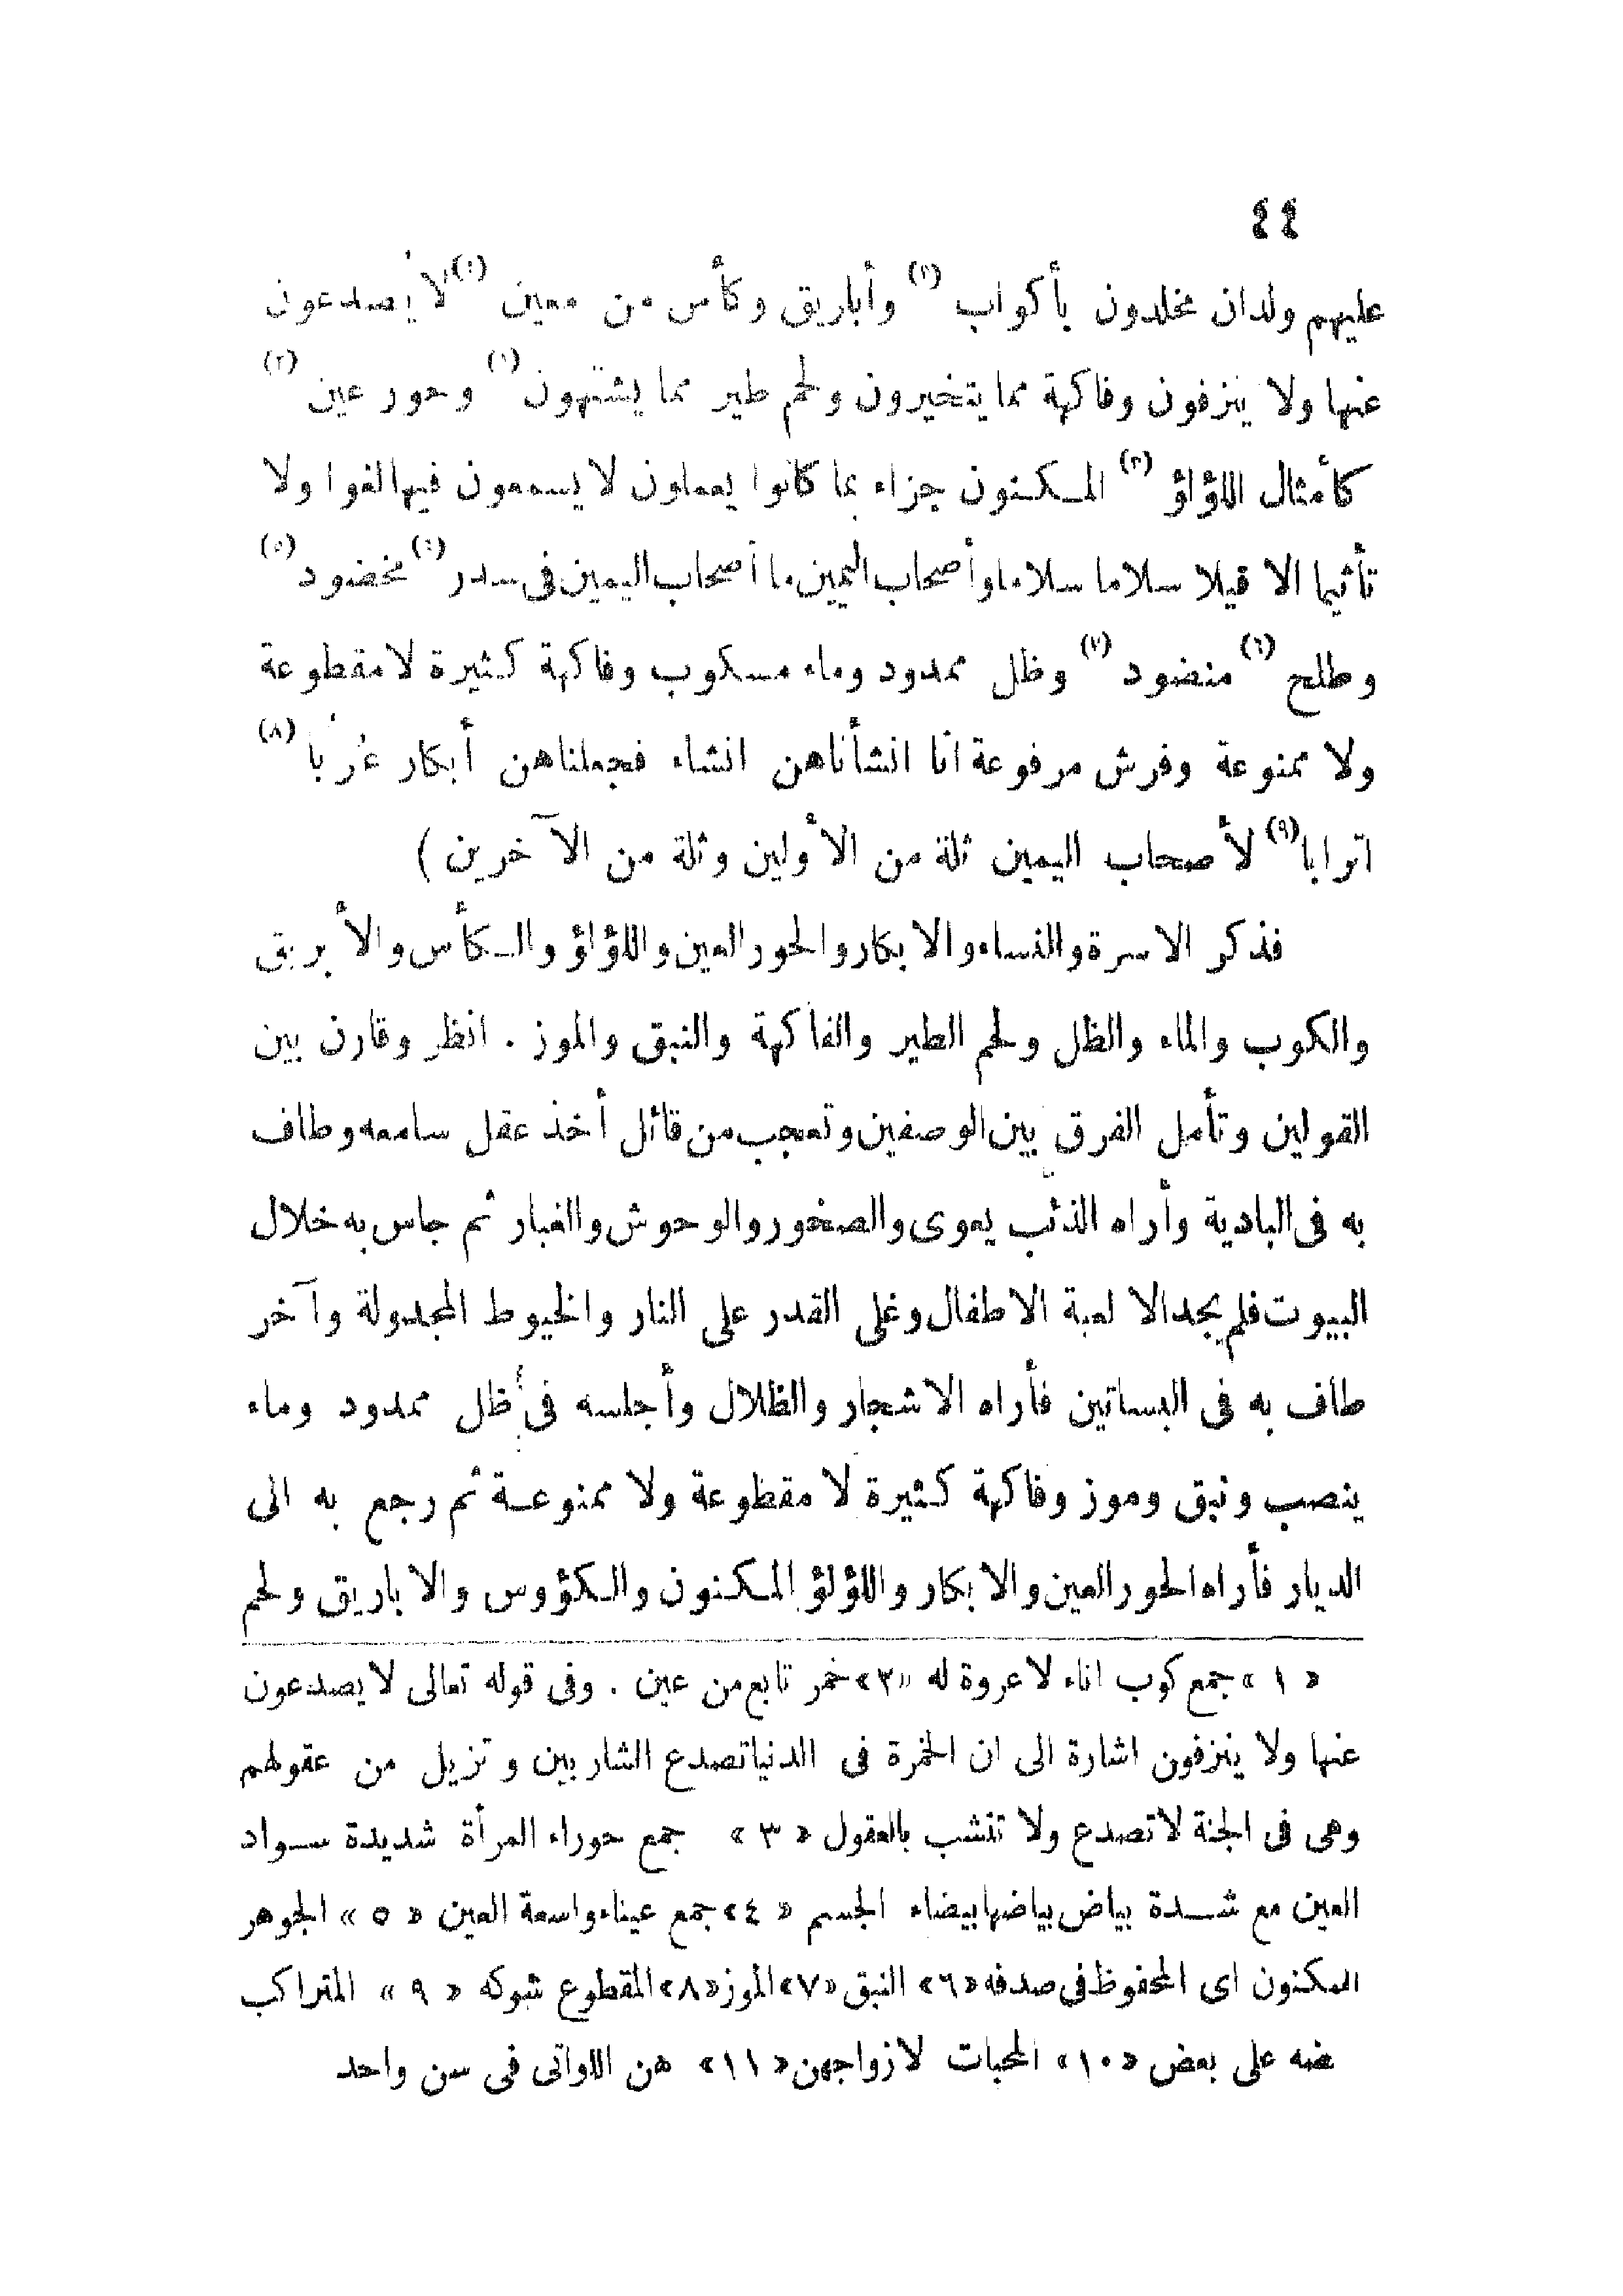 ٤٤
عليهم ولدان مخلدون بأكواب (١) وأباريق وكأس من معين (٤) لا يصدعون
عنها ولا ينزفون وفاكهة مما يتخيرون ولحم طير مما يشتهون (١) وحور عين (٢)
كأمثال اللؤلؤ (٣) المكنون جزاء بما كانوا يعملون لا يسمعون فيها لغوا ولا
تأثيما الا قيلا سلاما سلاما وأصحاب اليمين ما أصحاب اليمين فى سدر (٤) مخضود (٥)
وطلح (٦) منضود (٧) وظل ممدود وماء مسكوب وفاكهة كثيرة لا مقطوعة
ولا ممنوعة وفرش مرفوعة انا انشأناهن انشاء فجعلناهن أبكار عُرُبا (٨)
اترابا (٩) لأصحاب اليمين ثلة من الأولين وثلة من الآخرين )
فذكر الاسرة والنساء والابكار والحور العين واللؤلؤ والكأس والأبريق
والكوب والماء والظل ولحم الطير والفاكهة والنبق والموز . انظر وقارن بين
القولين وتأمل الفرق بين الوصفين وتعجب من قائل أخذ عقل سامعه وطاف
به فى البادية وأراه الذئب يعوى والصخور والوحوش والغبار ثم جاس به خلال
البيوت فلم يجد الا لعبة الاطفال وغلى القدر على النار والخيوط المجدولة وآخر
طاف به فى البساتين فأراه الاشجار والظلال وأجلسه فى ظل ممدود وماء
ينصب ونبق وموز وفاكهة كثيرة لا مقطوعة ولا ممنوعة ثم رجع به الى
الديار فأراه الحور العين والابكار واللؤلؤ المكنون والكؤوس والاباريق ولحم
« ١ » جمع كوب اناء لا عروة له «٢» خمر تابع من عين . وفى قوله تعالى لا يصدعون
عنها ولا ينزفون اشارة الى ان الخمرة فى الدنيا تصدع الشاربين وتزيل من عقولهم
وهى فى الجنة لا تصدع ولا تنشب بالعقول « ٣ » جمع حوراء المرأة شديدة سواد
العين مع شدة بياض بياضها بيضاء الجسم « ٤ » جمع عيناء واسعة العين « ٥ » الجوهر
المكنون اى المحفوظ فى صدفه «٦» النبق «٧» الموز «٨» المقطوع شوكه « ٩ » المتراكب
ضه على بعض «١٠» المحبات لازواجهن «١١» هن اللواتى فى سن واحد